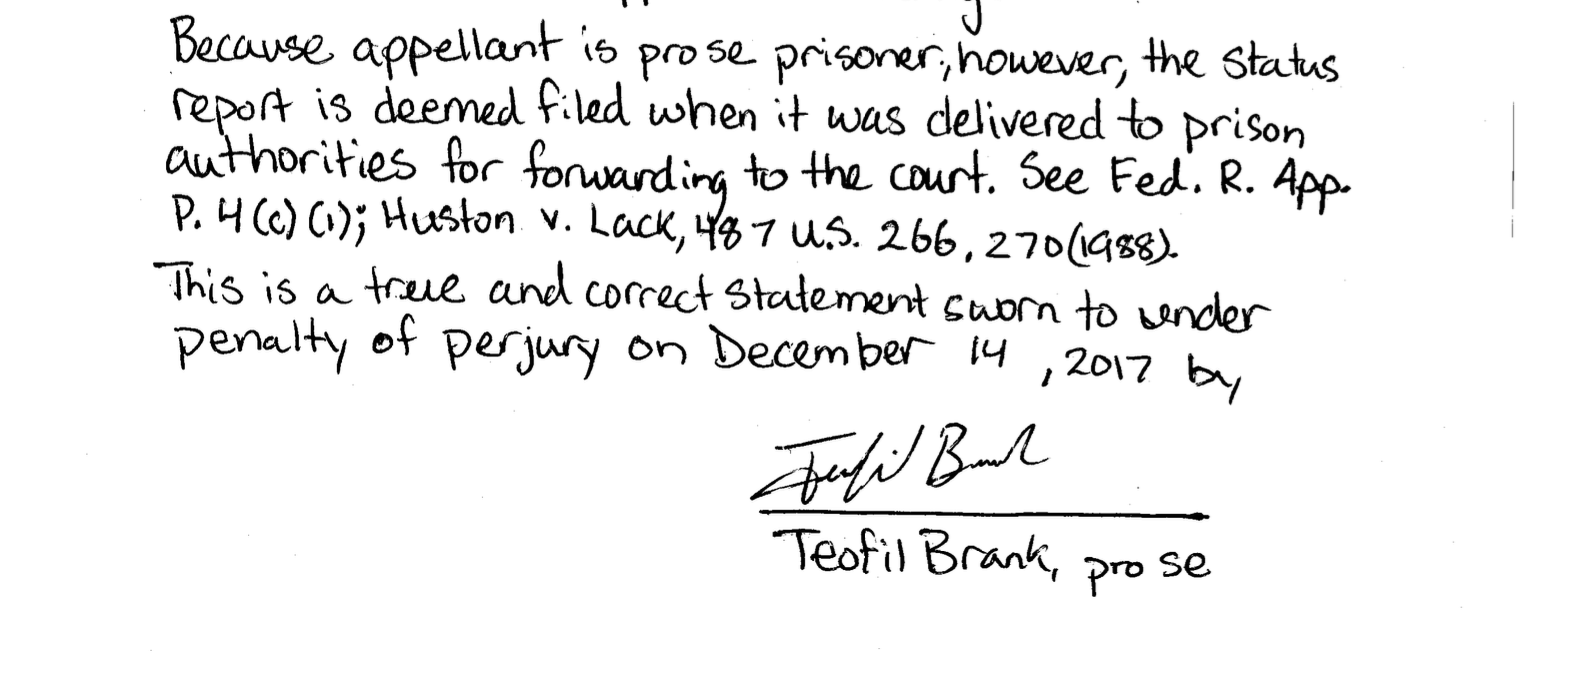 Because appellant is pro se prisoner, however, the status
report is deemed filed when it was delivered to prison
authorities for forwarding to the court. See Fed. R. App.
P. 4(c)(1); Huston v. Lack, 487 U.S. 266, 270(1988).
This is a true and correct statement sworn to under
penalty of perjury on December 14, 2017 by
Teofil Brank
Teofil Brank, pro se